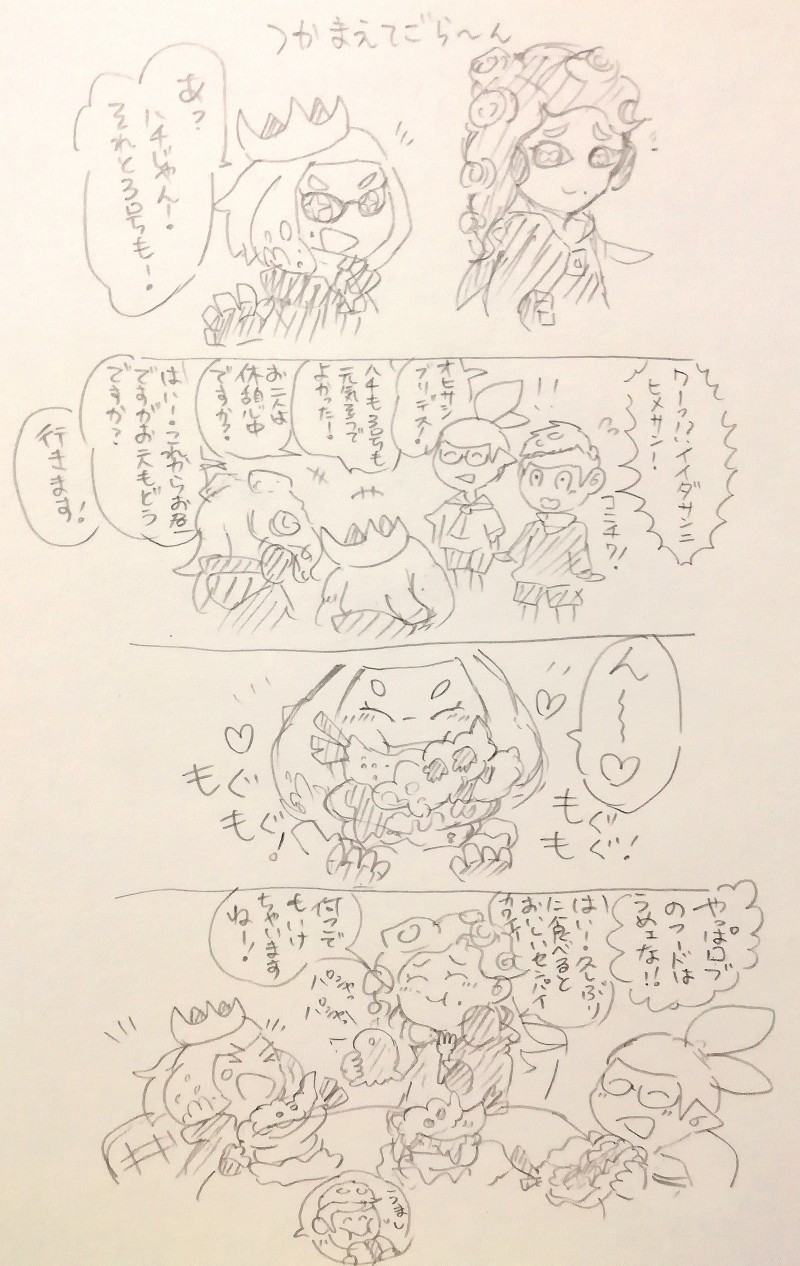 つかまえてごら〜ん
あ?
ハチじゃん!
それと3号も!
ワーっ!?イイダサンニ
ヒメサン!
コニチワ!
オヒサシ
ブリデス!
ハチも3号も
元気そうで
よかった!
お二人は
休憩中
ですか?
はい!これからお昼
ですがお二人もどう
ですか?
行きます!
ん〜〜♡
もぐ
もぐ!
もぐ
もぐ!
やっぱロブ
のフードは
うめェな!!
はい!久しぶり
に食べると
おいしいセンパイ
カワイイ
何コでも
もいけ
ちゃいます
ねー!
パシャッ
パシャッ
うまし